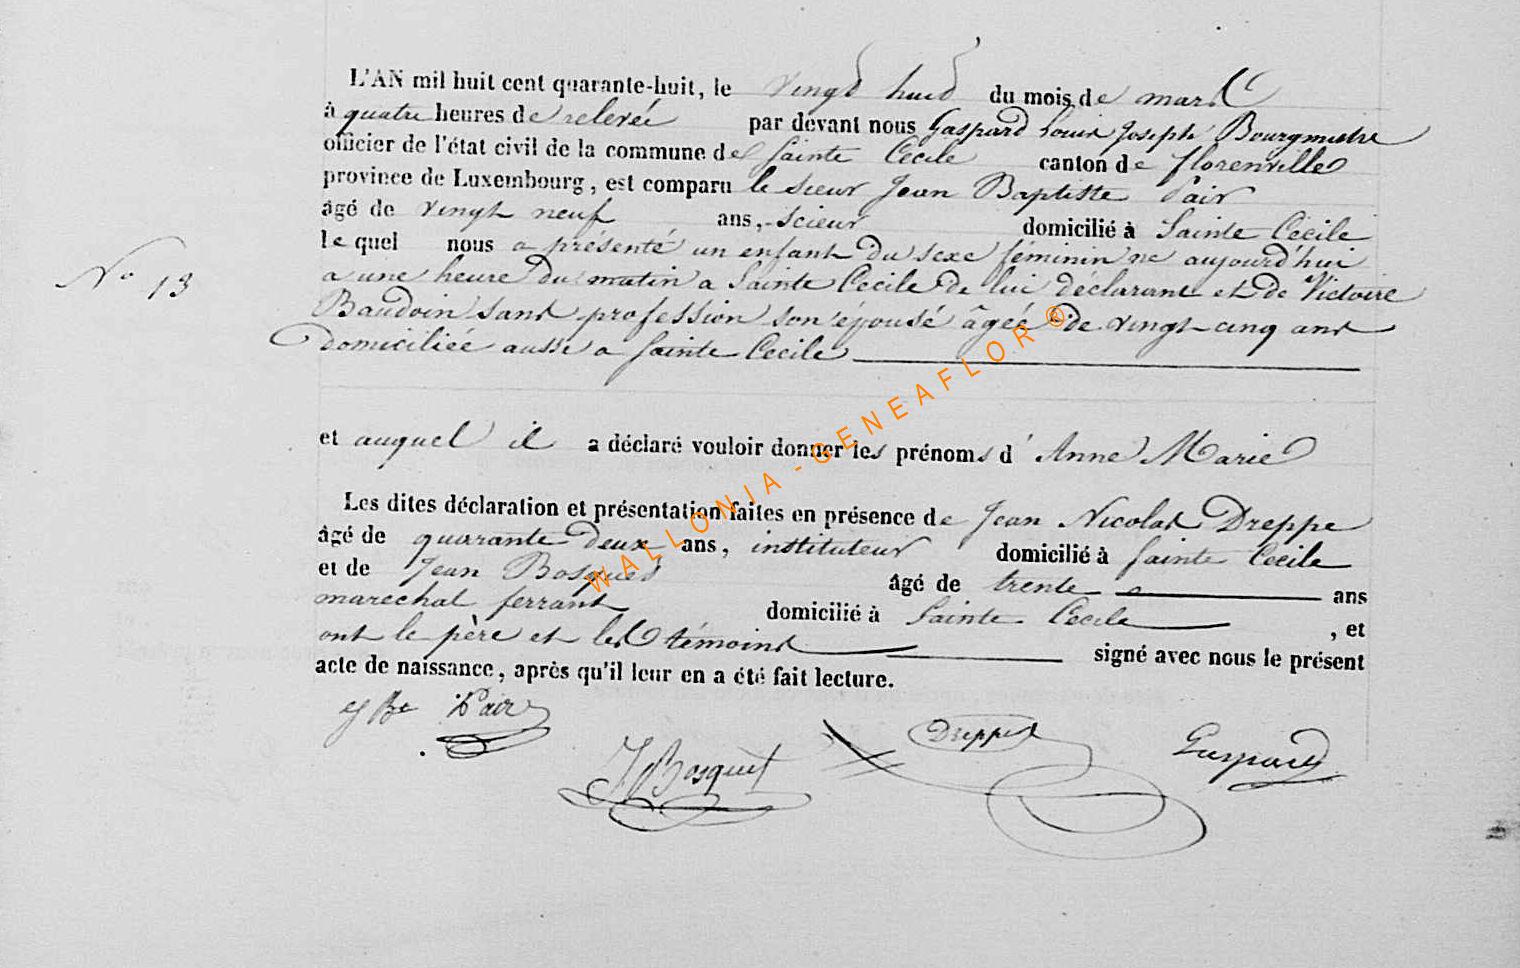 L'AN mil huit cent quarante-huit, le vingt huit du mois de mars
à quatre heures de relevée par devant nous Gaspard Louis Joseph Bourgmestre
officier de l'état civil de la commune de Sainte Cécile canton de florenville
province de Luxembourg, est comparu le sieur Jean Baptiste Pair
âgé de vingt neuf ans, scieur domicilié à Sainte Cécile
le quel nous a présenté un enfant du sexe féminin né aujourd'hui
N° 13
a une heure du matin a Sainte Cecile de lui déclarant et de Victoire
Baudoin sans profession son épousé âgeé de vingt-cinq ans
domiciliée aussi a Sainte Cecile
et auquel il a déclaré vouloir donner les prénoms d' Anne Marie
Les dites déclaration et présentation faites en présence de Jean Nicolas Dreppe
âgé de quarante deux ans, instituteur domicilié à Sainte Cecile
et de Jean Bosquet âgé de trente ans
marechal ferrant domicilié à Sainte Cecile , et
ont le père et les témoins signé avec nous le présent
acte de naissance, après qu'il leur en a été fait lecture.
J Bte Pair
J Bosquet
Dreppe
Gaspard
WALLONIA-GENEAFLOR®